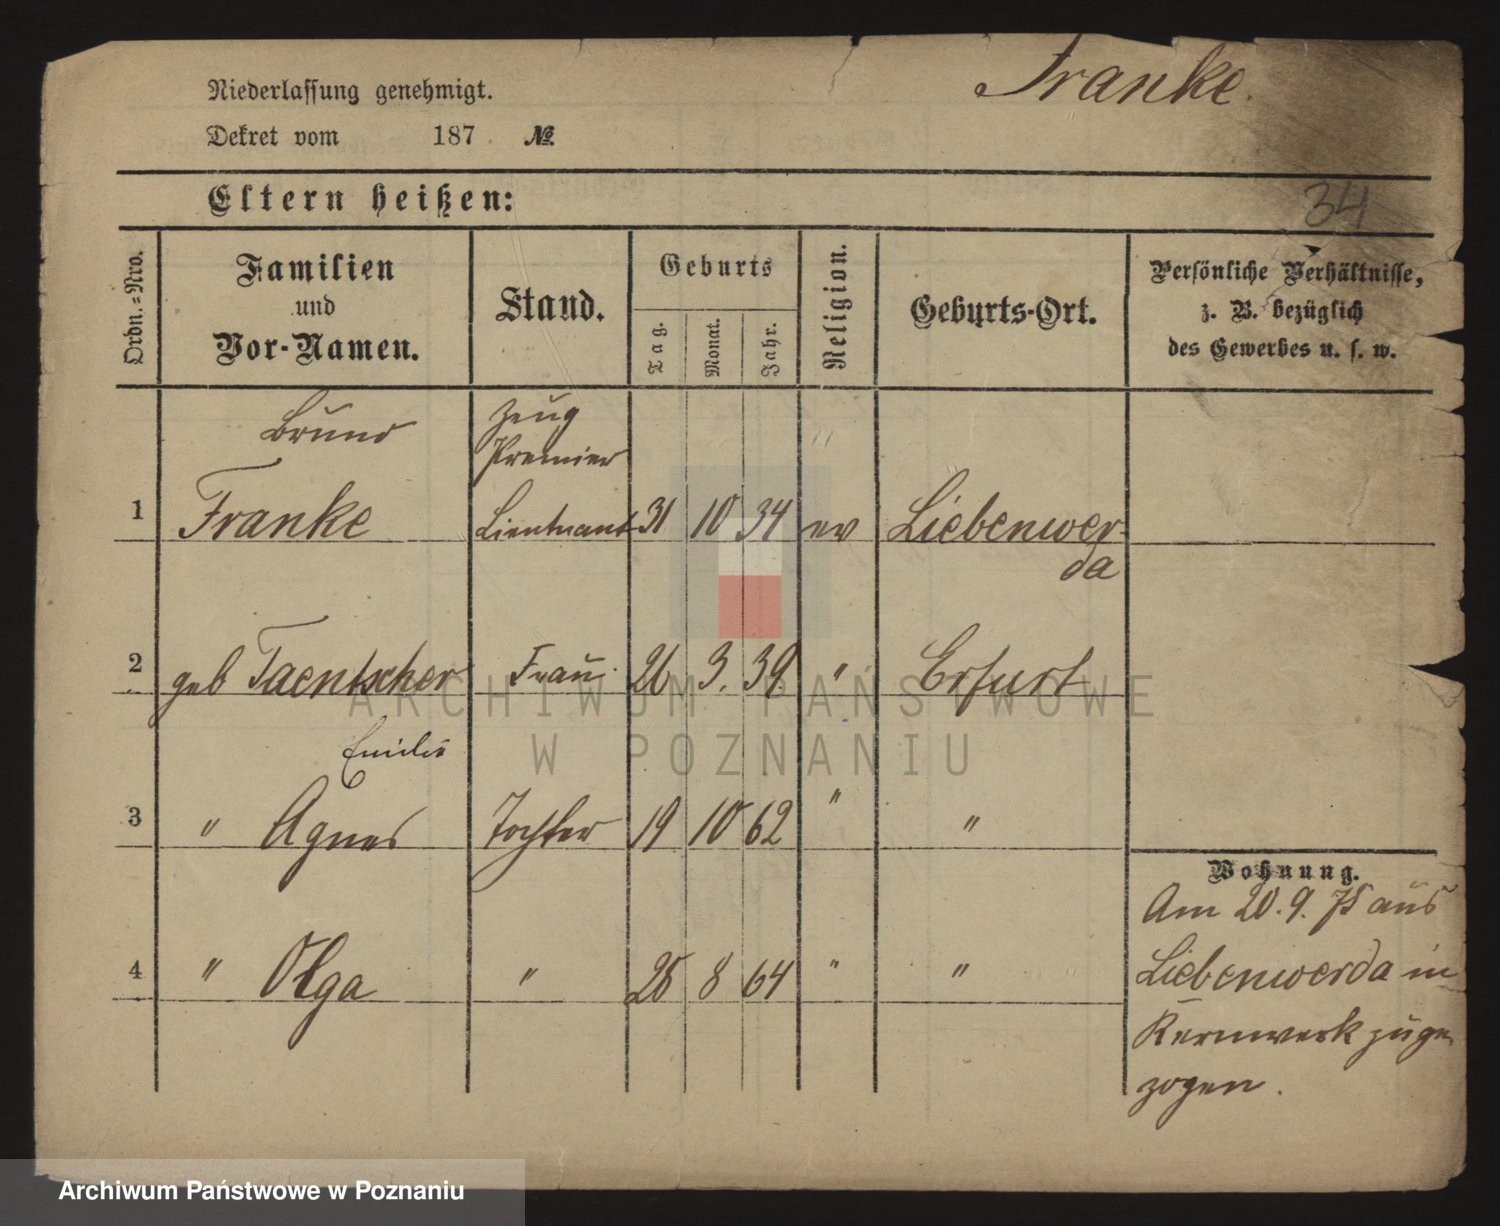 Franke.
Niederlassung genehmigt.
Dekret vom 187 №
Eltern heißen:
34
Ordn.=Nro.
Familien
und
Vor-Namen.
Stand.
Geburts
Tag.
Monat.
Jahr.
Religion.
Geburts-Ort.
Persönliche Verhältnisse,
z. B. bezüglich
des Gewerbes u. s. w.
Bruno Zeug
Premier
1 Franke Lieutnant 31 10 34 ev Liebenwer-
da
2 geb Taentscher Frau 26 3. 39. " Erfurt
Emilie
3 " Agnes Tochter 19 10 62 " "
Wohnung.
Am 20. 9. 75 aus
4 " Olga " 28 8 64 " "
Liebenwerda in
Kernwerk zuge-
zogen.
ARCHIWUM PAŃSTWOWE
W POZNANIU
Archiwum Państwowe w Poznaniu